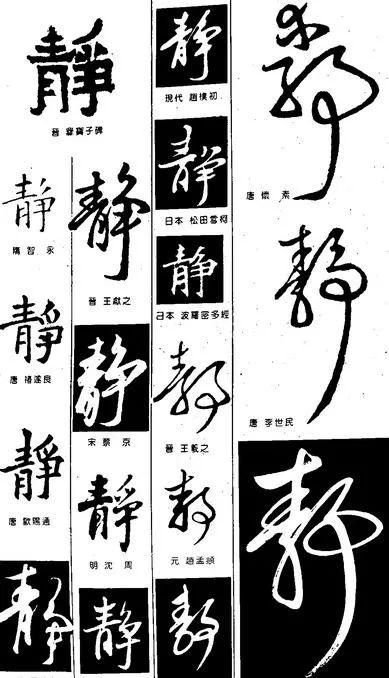 靜
晋 爨寶子碑
静
隋 智 永
靜
唐 褚遂良
靜
唐 歐陽通
靜
靜
晋 王獻之
静
宋 蔡 京
靜
明 沈 周
静
静
現代 趙樸初
静
日本 松田雪柯
静
日本 波羅密多經
静
晋 王羲之
静
元 趙孟頫
静
静
唐 懷 素
静
唐 李世民
静